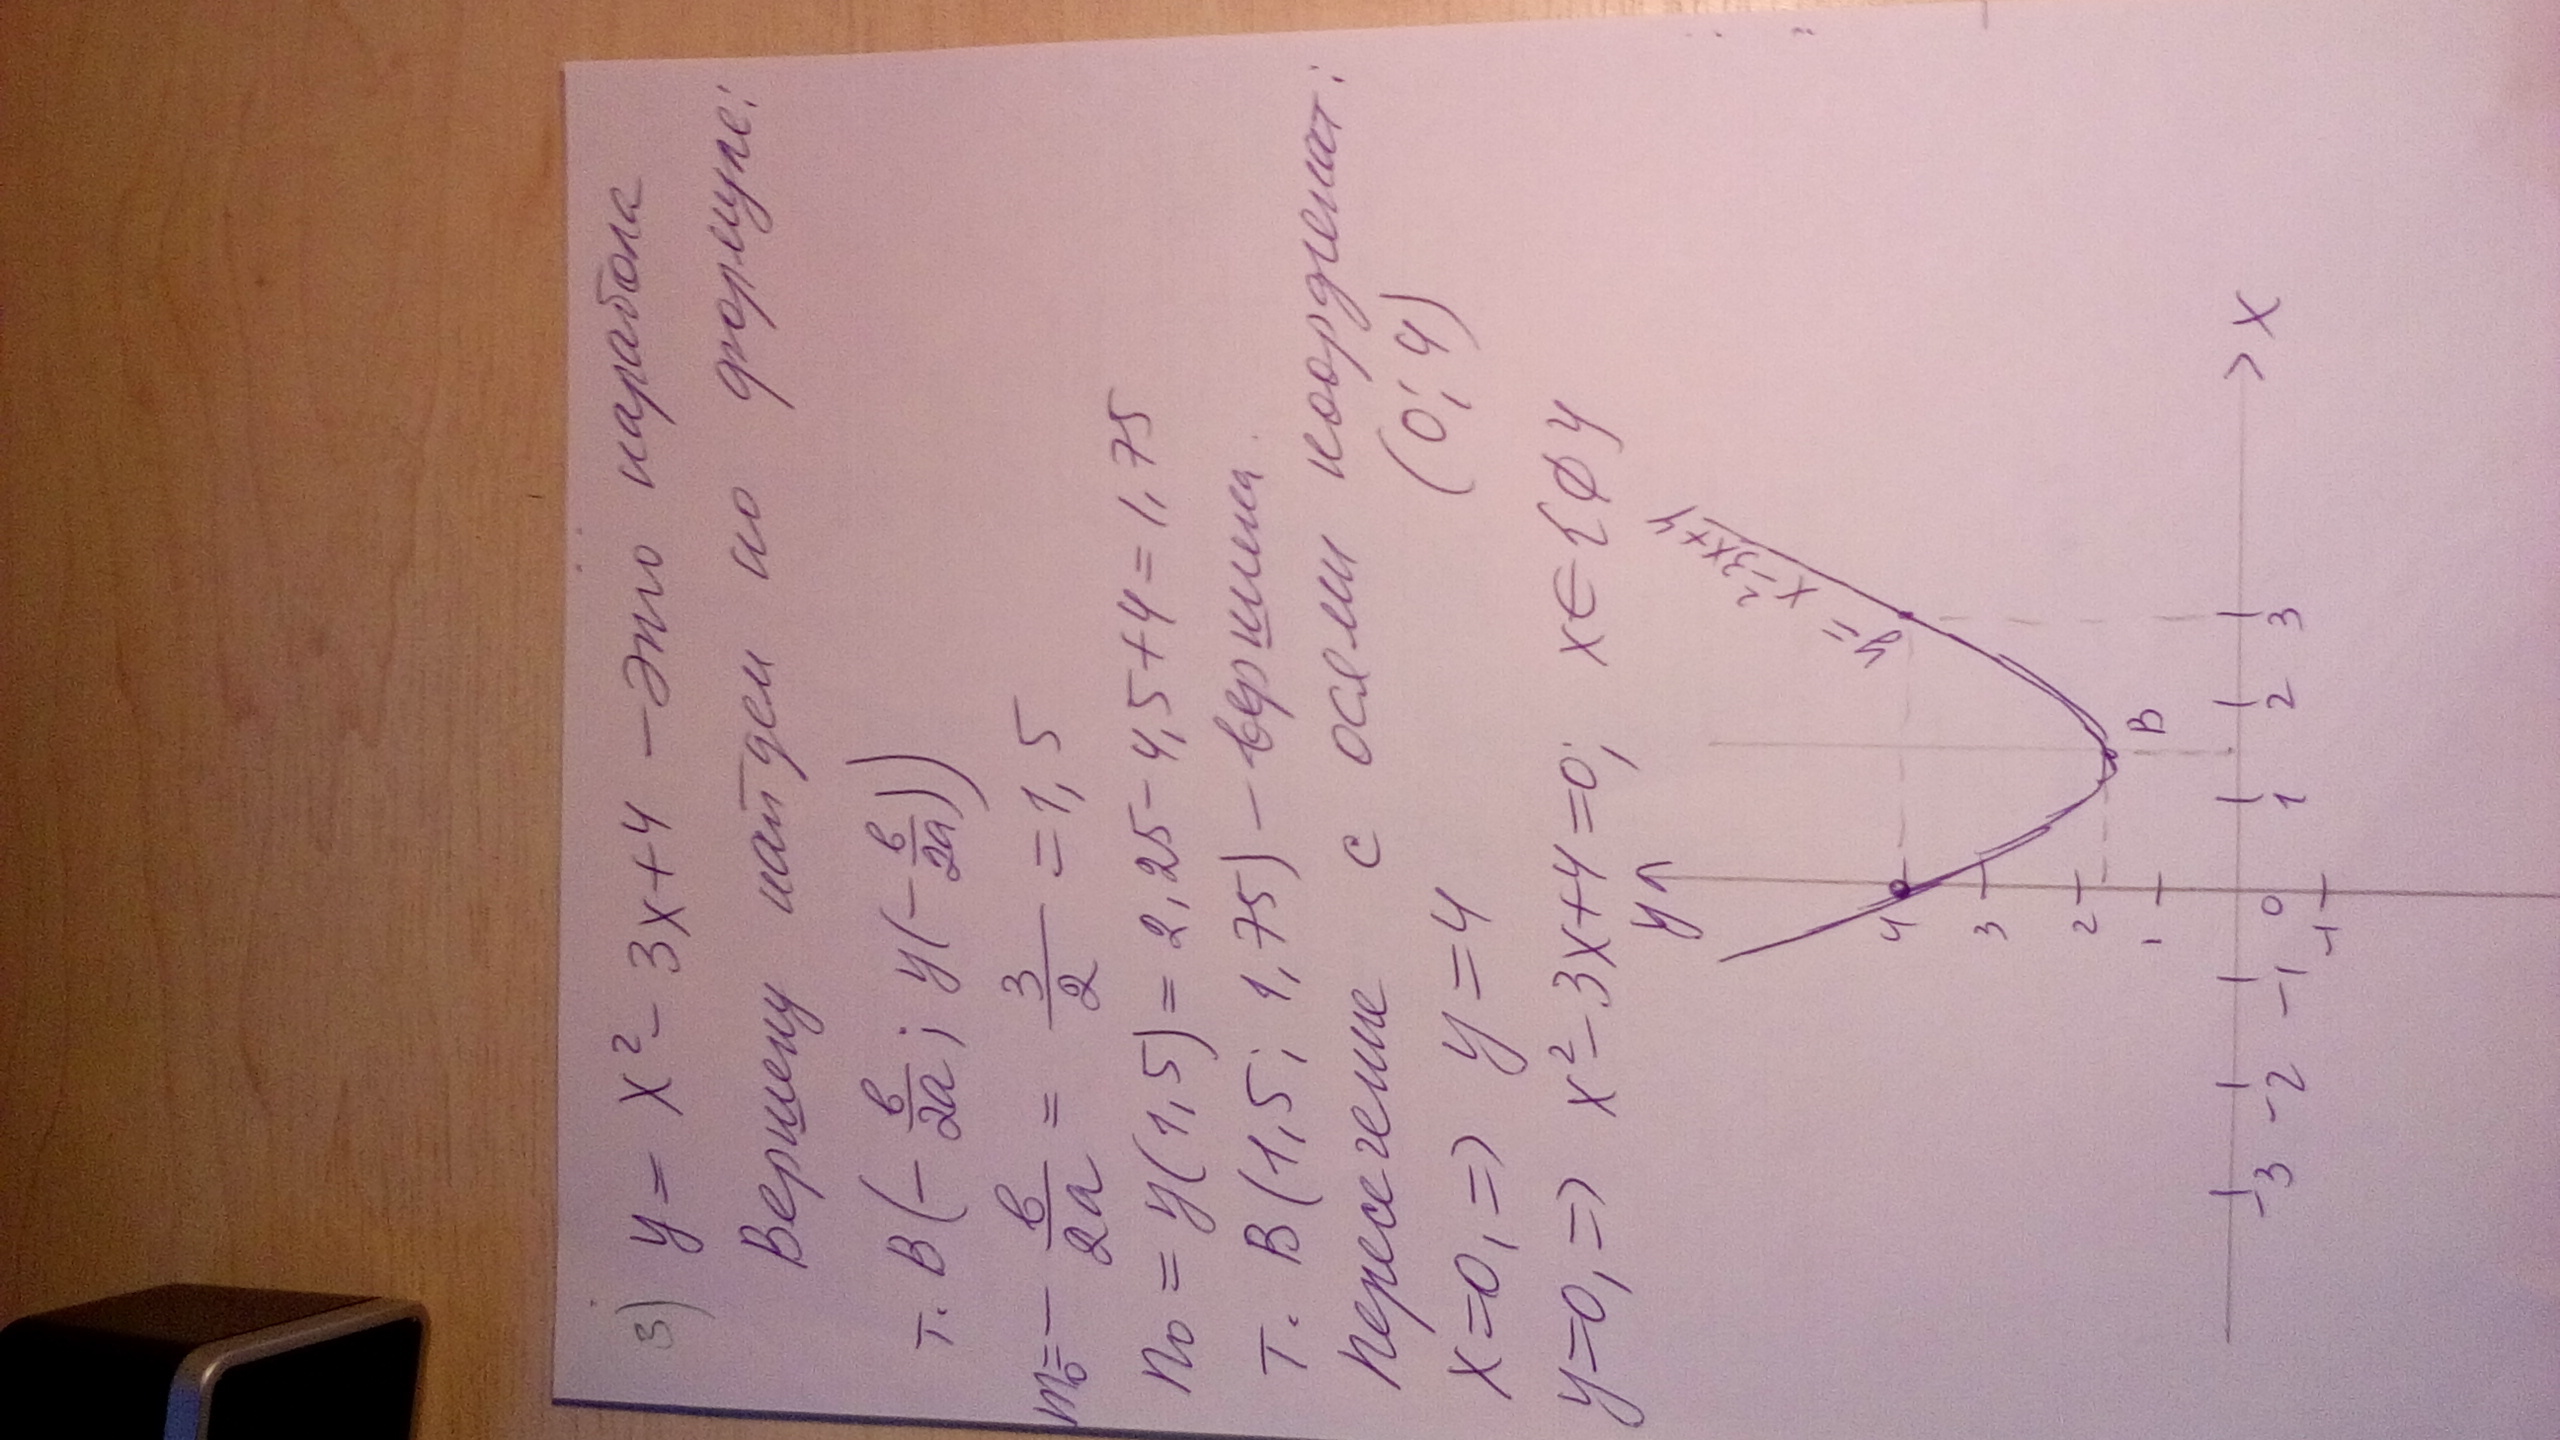 3) y = x² - 3x + 4 - это парабола
Вершину найдем по формуле:
т. В(-в/2а; y(-в/2а))
m₀ = -в/2а = 3/2 = 1,5
n₀ = y(1,5) = 2,25 - 4,5 + 4 = 1,75
т. В(1,5; 1,75) - вершина.
Пересечение с осями координат:
x=0, => y = 4 (0; 4)
y=0, => x² - 3x + 4 = 0; x ∈ {∅}
y
y = x² - 3x + 4
4
3
2
В
1
-3 -2 -1 0 1 2 3 x
-1